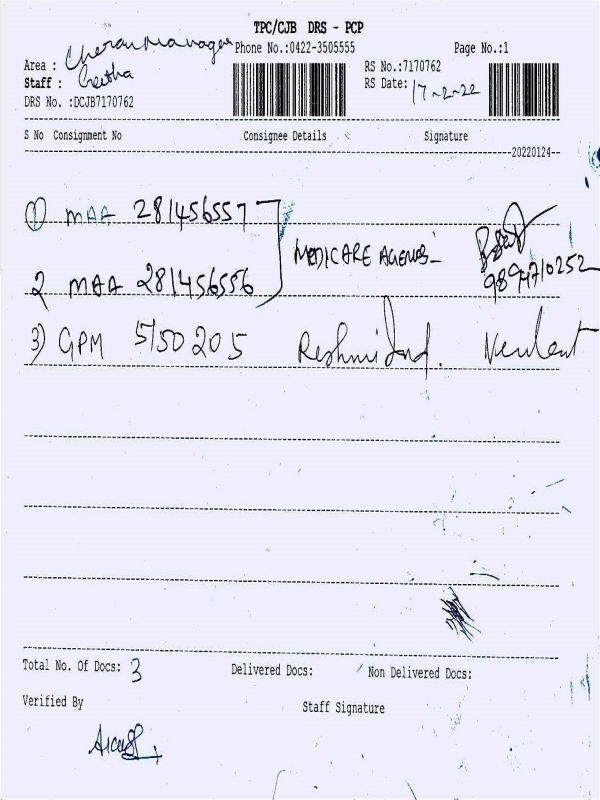 TPC/CJB DRS - PCP
Area : Cheran Managar Phone No.:0422-3505555 Page No.:1
Staff : Geetha RS No.:7170762
DRS No. :DCJB7170762 RS Date: 17-2-22
S No Consignment No Consignee Details Signature
20220124
① MAA 281456557
MEDICARE AGENCIES
2 MAA 281456556 9894710252
3) GPM 5150205 Reshmi Ind. Venkat
Total No. Of Docs: 3 Delivered Docs: Non Delivered Docs:
Verified By Staff Signature